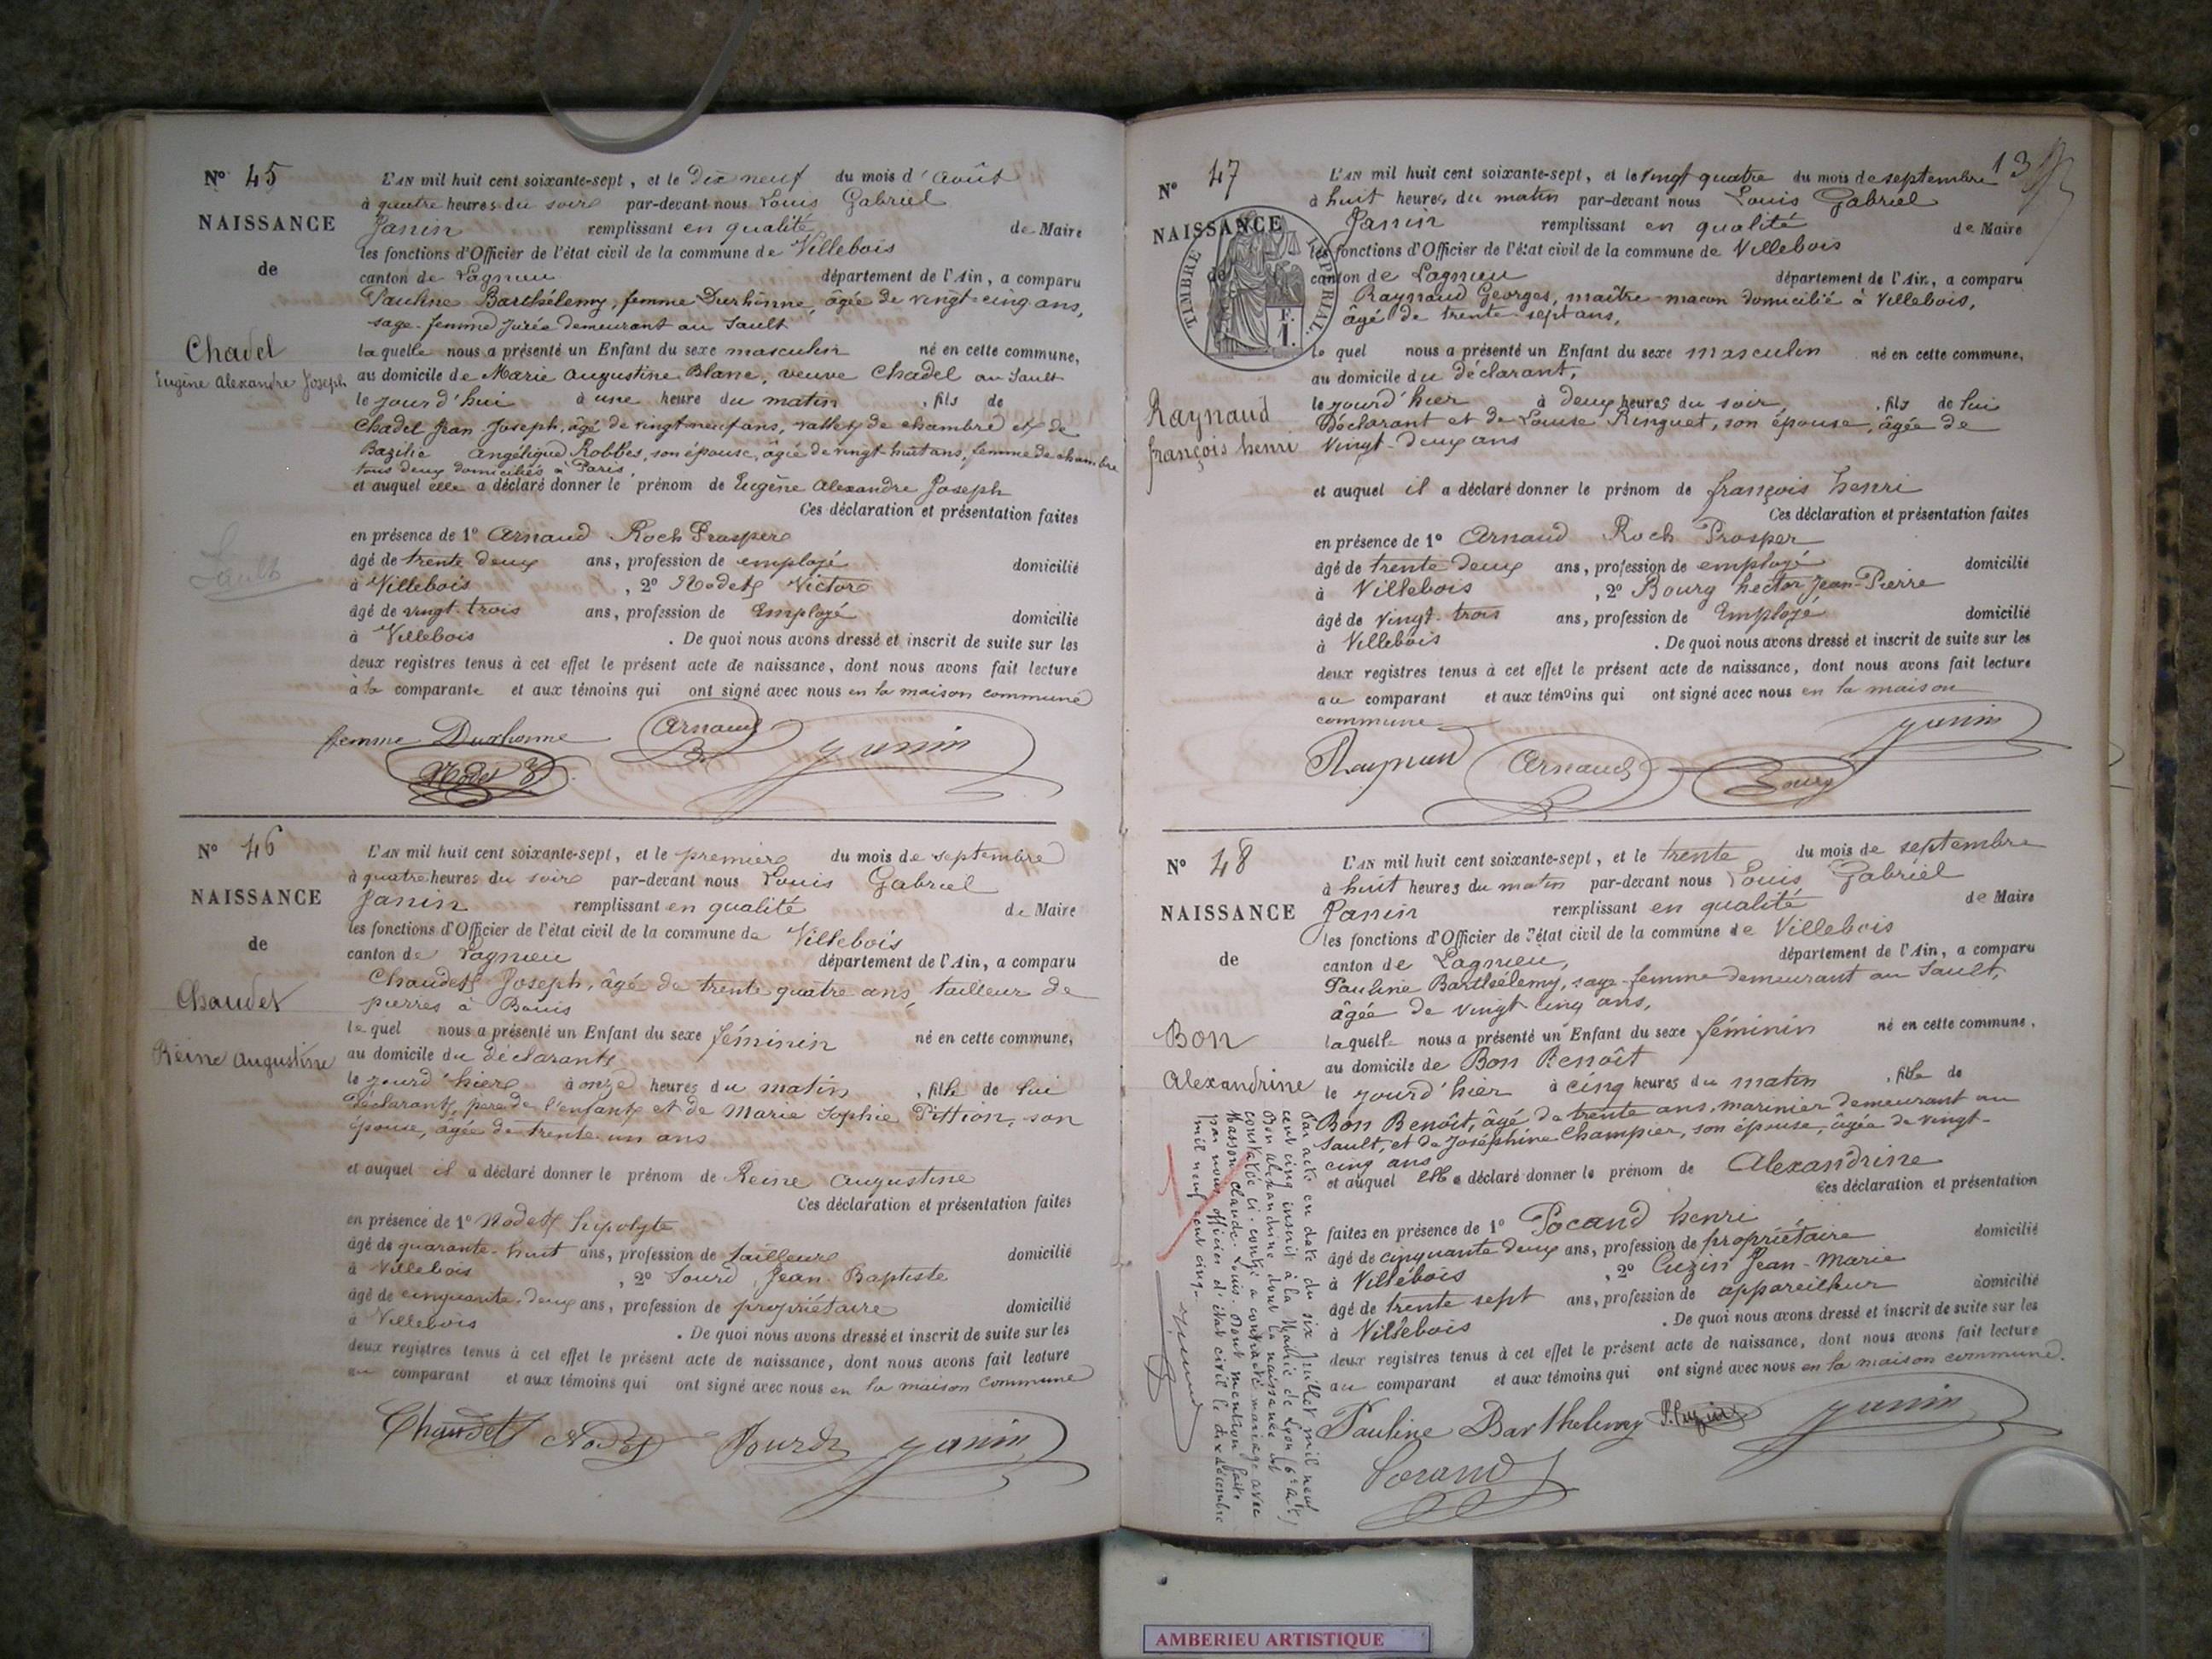 N° 45
NAISSANCE
de
Chadel
Eugène Alexandre Joseph
Sault
L'AN mil huit cent soixante-sept, et le Dix neuf du mois d'Août
à quatre heures du soir par-devant nous Louis Gabriel
Janin remplissant en qualité de Maire
les fonctions d'Officier de l'état civil de la commune de Villebois
canton de Lagnieu département de l'Ain, a comparu
Pauline Barthélemy, femme Durhônne, âgée de vingt-cinq ans,
sage-femme jurée demeurant au Sault
laquelle nous a présenté un Enfant du sexe masculin né en cette commune,
au domicile de Marie Augustine Blanc, veuve Chadel au Sault
le jour d'hui à une heure du matin, fils de
Chadel Jean Joseph, âgé de vingt neuf ans, vallet de chambre et de
Bazilie Angélique Robbes, son épouse, âgée de vingt-huit ans, femme de chambre
tous deux domiciliés à Paris,
et auquel elle a déclaré donner le prénom de Eugène Alexandre Joseph
Ces déclaration et présentation faites
en présence de 1° Arnaud Roch Prosper
âgé de trente deux ans, profession de employé domicilié
à Villebois, 2° Nodet Victor
âgé de vingt-trois ans, profession de Employé domicilié
à Villebois. De quoi nous avons dressé et inscrit de suite sur les
deux registres tenus à cet effet le présent acte de naissance, dont nous avons fait lecture
à la comparante et aux témoins qui ont signé avec nous en la maison commune
femme Durhonne Arnaud Janin
Nodet
N° 46
NAISSANCE
de
Chaudet
Reine Augustine
L'AN mil huit cent soixante-sept, et le premier du mois de septembre
à quatre heures du soir par-devant nous Louis Gabriel
Janin remplissant en qualité de Maire
les fonctions d'Officier de l'état civil de la commune de Villebois
canton de Lagnieu département de l'Ain, a comparu
Chaudet Joseph, âgé de trente quatre ans, tailleur de
pierres à Bouis
lequel nous a présenté un Enfant du sexe féminin né en cette commune,
au domicile du déclarant
le jourd'hier à onze heures du matin, fille de lui
Déclarant, père de l'enfant et de Marie Sophie Pittion, son
épouse, âgée de trente un ans
et auquel il a déclaré donner le prénom de Reine Augustine
Ces déclaration et présentation faites
en présence de 1° Nodet hipolyte
âgé de quarante-huit ans, profession de tailleur domicilié
à Villebois, 2° Sourd Jean Baptiste
âgé de cinquante-deux ans, profession de propriétaire domicilié
à Villebois. De quoi nous avons dressé et inscrit de suite sur les
deux registres tenus à cet effet le présent acte de naissance, dont nous avons fait lecture
au comparant et aux témoins qui ont signé avec nous en la maison commune
Chaudet Nodet Sourd Janin
13
N° 47
NAISSANCE
de
TIMBRE IMPÉRIAL
F.
1.
Raynaud
françois henri
L'AN mil huit cent soixante-sept, et le vingt quatre du mois de septembre
à huit heures du matin par-devant nous Louis Gabriel
Janin remplissant en qualité de Maire
les fonctions d'Officier de l'état civil de la commune de Villebois
canton de Lagnieu département de l'Ain, a comparu
Raynaud Georges, maître-maçon domicilié à Villebois,
âgé de trente-sept ans,
lequel nous a présenté un Enfant du sexe masculin né en cette commune,
au domicile du déclarant,
le jourd'hier à deux heures du soir, fils de lui
Déclarant et de Louise Ringuet, son épouse, âgée de
vingt-deux ans
et auquel il a déclaré donner le prénom de françois henri
Ces déclaration et présentation faites
en présence de 1° Arnaud Roch Prosper
âgé de trente deux ans, profession de employé domicilié
à Villebois, 2° Bourg hector Jean-Pierre
âgé de vingt-trois ans, profession de Employé domicilié
à Villebois. De quoi nous avons dressé et inscrit de suite sur les
deux registres tenus à cet effet le présent acte de naissance, dont nous avons fait lecture
au comparant et aux témoins qui ont signé avec nous en la maison
commune Janin
Raynaud Arnaud Bourg
N° 48
NAISSANCE
de
Bon
Alexandrine
L'AN mil huit cent soixante-sept, et le trente du mois de septembre
à huit heures du matin par-devant nous Louis Gabriel
Janin remplissant en qualité de Maire
les fonctions d'Officier de l'état civil de la commune de Villebois
canton de Lagnieu, département de l'Ain, a comparu
Pauline Barthélemy, sage-femme demeurant au Sault,
âgée de vingt-cinq ans,
laquelle nous a présenté un Enfant du sexe féminin né en cette commune,
au domicile de Bon Benoît
le jourd'hier à cinq heures du matin, fille de
Bon Benoît, âgé de trente ans, marinier demeurant au
Sault, et de Joséphine Champier, son épouse, âgée de vingt-
cinq ans
et auquel elle a déclaré donner le prénom de Alexandrine
Ces déclaration et présentation
faites en présence de 1° Pocand henri
âgé de cinquante deux ans, profession de propriétaire domicilié
à Villebois, 2° Cuzin Jean-Marie
âgé de trente sept ans, profession de appareilleur domicilié
à Villebois. De quoi nous avons dressé et inscrit de suite sur les
deux registres tenus à cet effet le présent acte de naissance, dont nous avons fait lecture
au comparant et aux témoins qui ont signé avec nous en la maison commune.
Pauline Barthelemy Janin
Pocand
Par acte en date du six Juillet mil neuf
cent cinq inscrit à la Mairie de Lyon (6e art)
Bon alexandrine dont la naissance est
constatée ci-contre a contracté mariage avec
Masson Claude Louis. Dont mention faite
par nous officier de l'état civil le dix décembre
mil neuf cent cinq.
AMBERIEU ARTISTIQUE